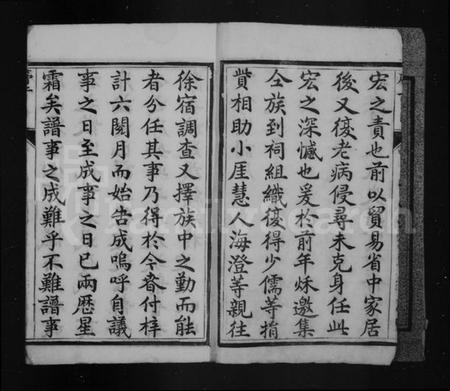 宏之責也前以貿易省中家居
後又復老病侵尋未克身任此
宏之深憾也爰於前年秌邀集
仝族到祠組織復得少儒等捐
貲相助小厓慧人海澄等親往
徐宿調查又擇族中之勤而能
者分任其事乃得於今春付梓
計六閱月而始告成嗚呼自議
事之日至成事之日已兩歷星
霜矣譜事之成難乎不難譜事